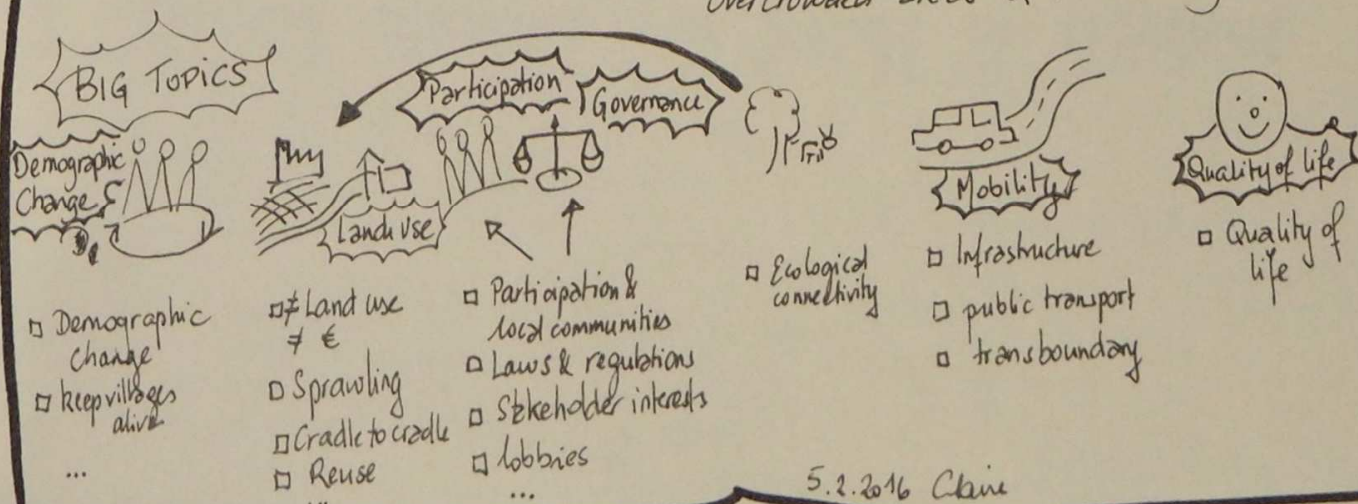 Overcrowded
BIG TOPICS
Demographic
Change
Land use
Participation
Governance
Mobility
Quality of life
□ Demographic
change
□ keep villages
alive
...
□ ≠ Land use
≠ €
□ Sprawling
□ Cradle to cradle
□ Reuse
...
□ Participation &
local communities
□ Laws & regulations
□ Stakeholder interests
□ lobbies
...
□ Ecological
connectivity
□ Infrastructure
□ public transport
□ transboundary
□ Quality of
life
5.2.2016 Claire